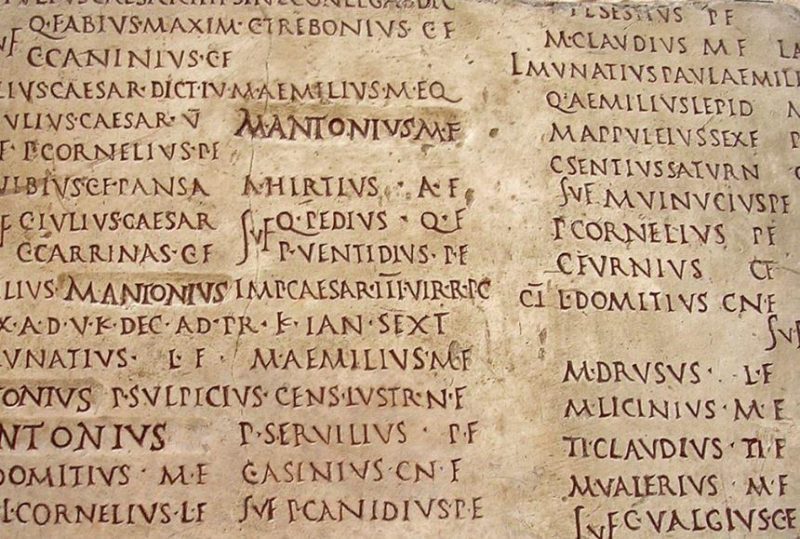 Q·FABIVS·MAXIM·C·TREBONIVS C F
SVF C·CANINIVS·C·F
LIVS·CAESAR·DICT·IV·M·AEMILIVS·M·EQ
VLIVS·CAESAR·V M·ANTONIVS·M·F
F P·CORNELIVS·P·F
VIBIVS·C·F·PANSA A·HIRTIVS · A·F
F C·IVLIVS·CAESAR SVF Q·PEDIVS · Q·F
C·CARRINAS·C·F P·VENTIDIVS·P·F
LIVS M·ANTONIVS IMP·CAESAR·III·VIR·R·P·C
X·A·D·V·K·DEC·AD·PR·K·IAN·SEXT
VNATIVS· L·F M·AEMILIVS·M·F
TONIVS P·SVLPICIVS·CENS·LVSTR·N·F
NTONIVS P·SERVILIVS · P·F
DOMITIVS · M·F C·ASINIVS·CN·F
L·CORNELIVS·L·F SVF P·CANIDIVS·P·F
P·SESTIVS P·F
M·CLAVDIVS M·F
L·MVNATIVS·PAVL·AEMILI
Q·AEMILIVS·LEPID M
M·APPVLEIVS·SEX·F P
C·SENTIVS·SATVRN
SVF M·VINVCIVS·P·F
P·CORNELIVS P·F
C·FVRNIVS C·F
CI L·DOMITIVS CN·F
SVF
M·DRVSVS· L·F
M·LICINIVS·M·F
TI·CLAVDIVS·TI·F
M·VALERIVS·M·F
SVF C·VALGIVS·C·F